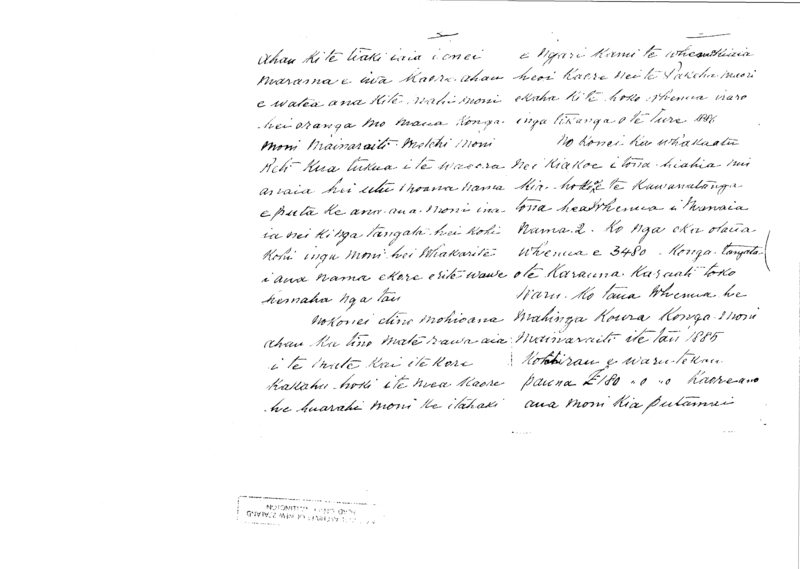 ahau ki te tiaki iaia i enei
marama e iwa Kaore ahau
e watea ana kite wahi moni
hei oranga mo maua Konga
moni Mainaraiti Mokhi moni
Reti Kua tukua i te
anaia hei utu moana nama
e puta ke ana ana moni ina
ia nei kinga tangata hei Kohi
Kohi inga moni hei Whakarite
i ana nama ekore erite wawe
hemaha nga tau
Nokonei etino mohioana
ahau Ka tino mate rawa aia
i te mate Kai ite Kore
Kakahu hoki ite mea Kaore
he huarahi moni Ke itahaki
e Ngari Kami te
heoi Kaore nei te Pakeha maori
ekaha Kite hoko Whenua iraro
inga tikanga ote Ture 1886
No Konei Kua whakaatu
nei Kiakoe i tona hiahia mi
Kia hokoa te Kawanatanga
tona hea Whenua i Wanaia
Nama 2. Ko nga eka otaua
Whenua e 3480. Konga tangata
ote Karauna Karaati toko
waru. Ko taua Whenua he
Mahinga Koura Konga moni
Mainaraiti ite tau 1885
Kotahirau e waru tekau
pauna £180 "0 "0 Kaore ano
ana moni Kia puta mai
ARCHIVES OF NEW ZEALAND
HEAD OFFICE WELLINGTON